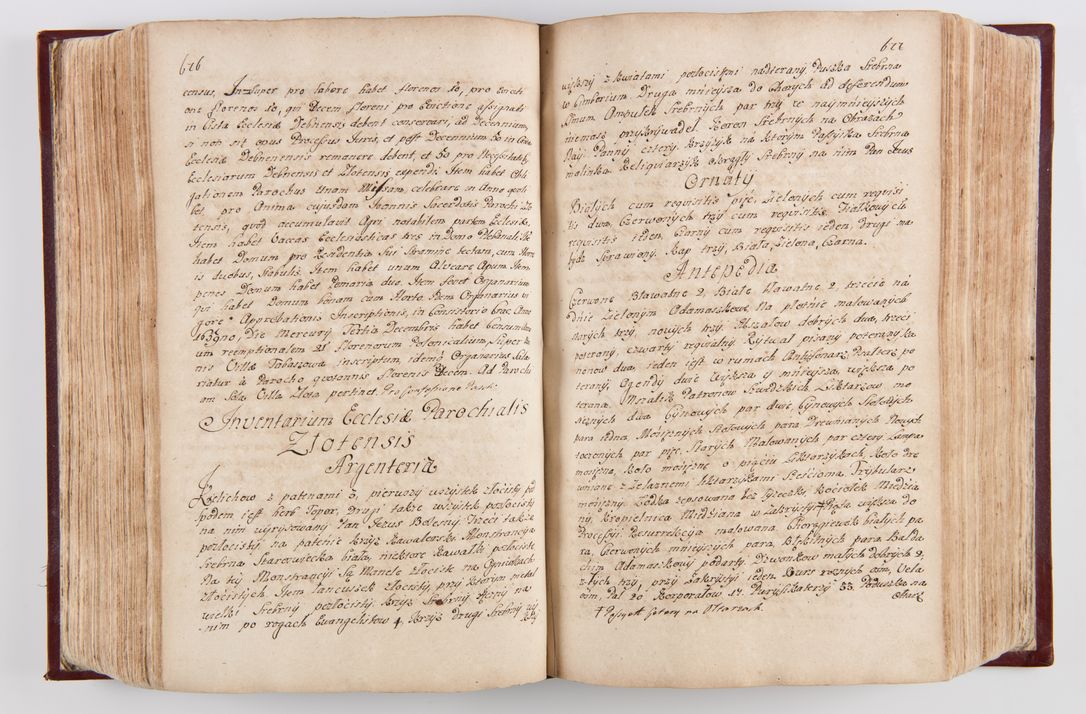 626
census, Insuper pro labore habet florenos 10, pro Sancti
one florenos 10, qui Decem floreni pro Sanctione assignati
in Cista Ecclesiæ Debnensis debent conservari, ad Decennium,
si non sit opus Processus Juris, et post Decennium 80 in Cista
Ecclesiæ Debnenensis remanere debent, et 80 pro Necessitatib9
Ecclesiarum Debnensis et Zlotensis expendi. Item habet Obli
gationem Parochus Unam Missam celebrare in Anno quoli
bet pro Anima cujusdam Joannis Sacerdotis Parochi Zlo
tensis, quod accumulavit Agri notabilem partem Ecclesiæ,
Item habet Vaccas Ecclesiasticas tres in Domo Plebanali,
habet Domum pro Residentia Sui Stramine tectam, cum Horre
is duobus, Stabulis. Item habet unum Alveare Apum Item
penes Domum habet Pomaria duo. Item fovet Organarium
qui habet Domum bonam cum Horto Item Organarius vi
gore Approbationis Inscriptionis, in Consistorio hac Anno
1639no, Die Mercurij Tertia Decembris habet Censum
um reemptionalem 21 florenorum Polonicalium, Super bo
nis Villæ Tabaszowa inscriptum, idemq Organarius Sala
riatur à Parocho quotannis florenis Decem. Ad Parochi
am Sola Villa Zlota pertinet.
Inventarium Ecclesiæ Parochialis
Zlotensis
Argenteria
Kielichow z patenami 3, pierwszy wszystek złocisty pod
spodem jest herb Topor, Drugi także wszystek pozłocisty
na nim wyrysowany Pan Jezus Bolesny Trzeci także
pozłocisty na patenie krzyż Kawalerski. Monstrancya
Srebrna Staroswiecka biała, niektore kawałki pozłociste
Na tey Monstrancyi Są Manele złociste na Opisałkach
złocistych. Item Łancuszek złocisty, przy ktorym metal
wielki Srebrny pozłocisty. Krzyż Srebrny dęty na
nim po rogach Ewangelistow 4, Krzyż drugi Srebrny
627
większy z kwiatami pozłocistemi nadłerany, Puszka Srebrna
w Cimborium. Druga mnieysza do Chorych ad deferendum
Ampułek Srebrnych par trzy w naymnieyszych
niemasz przykrywadeł. Koron Srebrnych na Obrazach
Nays: Panny cztery. Krzyżyk na ktorym Passyika Srebrna
malinka. Reliquiarzyk okrągły Srebrny na nim Pan Jezus
Ornaty
Białych cum requisitis pięć, Zielonych cum requisi
tis dwa, Czerwonych trzy cum requisitis, Fiałkowych
requisitis jeden, Czarny cum requisitis jeden, drugi ma
bydz Sprawiony. Kap trzy, Biała, Zielona, Czarna.
Antepedia
Czerwone Bławatne 2, Białe Bławatne 2, trzecie na
dnie Zielonym Adamaszkowe, Na płotnie malowanych
starych trzy, nowych trzy. Mszałow dobrych dwa, trzeci
poterany, czwarty requialny. Rytwał pisany poterany, Ka
nonow dwa, jeden jest w rumach Antyfonarz, Psałterz po
terany, Agendy dwie większa y mnieysza, większa po
terana. Mszalik Patronow Szwedzkich. Liktarzow mo
siężnych dwa Cynowych par dwie, Cynowych Stołowych
para jedna, Mosiężnych Stołowych para Drewnianych Nowych
toczonych par pięc, Starych Malowanych par cztery Lampa
mosiężna, Koło mosiężne o pięciu Liktarzykach, Koło dre
wniane z żelaznemi liktarzykami sześcioma. Trybularz
mosiężny. Łodka zepsowana bez łyżeczki, Kociołek Miedzia
ny, Kropielnica Miedziana w Zakrystyi + Roża większa do
Processyi Resurrekcya malowana. Chorągiewek białych pa
ra, Czerwonych mnieyszych para, Błękitnych para. Balda
chim Adamaszkowy podarty. Dzwonkow małych dobrych 2,
złych trzy, przy Zakrystyi jeden. Burs roznych osm, Vela
osm, Pal 20 Korporałow 17. Puryfikaterzy 33. Poduszka na
Ołtarz
+ Passyik sztery na Ołtarzach